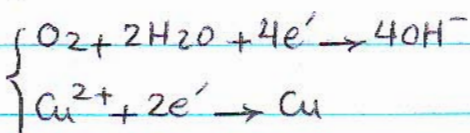 O₂ + 2H₂O + 4e′ → 4OH⁻
Cu²⁺ + 2e′ → Cu